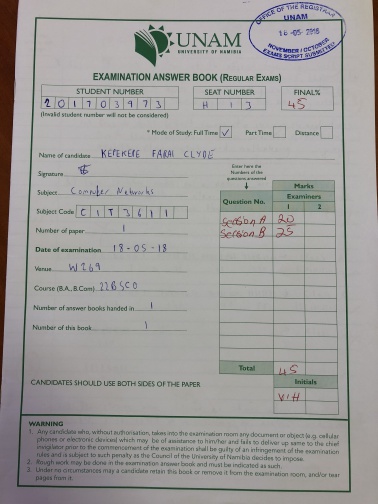 OFFICE OF THE REGISTRAR
UNAM
16 -05- 2018
NOVEMBER / OCTOBER
EXAMS SCRIPT SUBMITTED
UNAM
UNIVERSITY OF NAMIBIA
EXAMINATION ANSWER BOOK (REGULAR EXAMS)
STUDENT NUMBER SEAT NUMBER FINAL%
201703973 H 13 45
(Invalid student number will not be considered)
* Mode of Study: Full Time ✓ Part Time Distance
Name of candidate KEPEKEPE FABAI CLYDE
Signature
Enter here the Numbers of the questions answered
Subject Computer Networks
Subject Code CIT3611
Number of paper 1
Date of examination 18-05-18
Venue W269
Course (B.A., B.Com) 22BSCO
Number of answer books handed in 1
Number of this book 1
Marks
Question No. Examiners
1 2
Section A 20
Section B 25
Total 45
CANDIDATES SHOULD USE BOTH SIDES OF THE PAPER
Initials
VIH
WARNING
1. Any candidate who, without authorisation, takes into the examination room any document or object (e.g. cellular
phones or electronic devices) which may be of assistance to him/her and fails to deliver up same to the chief
invigilator prior to the commencement of the examination shall be guilty of an infringement of the examination
rules and is subject to such penalty as the Council of the University of Namibia decides to impose.
2. Rough work may be done in the examination answer book and must be indicated as such.
3. Under no circumstances may a candidate retain this book or remove it from the examination room, and/or tear
pages from it.